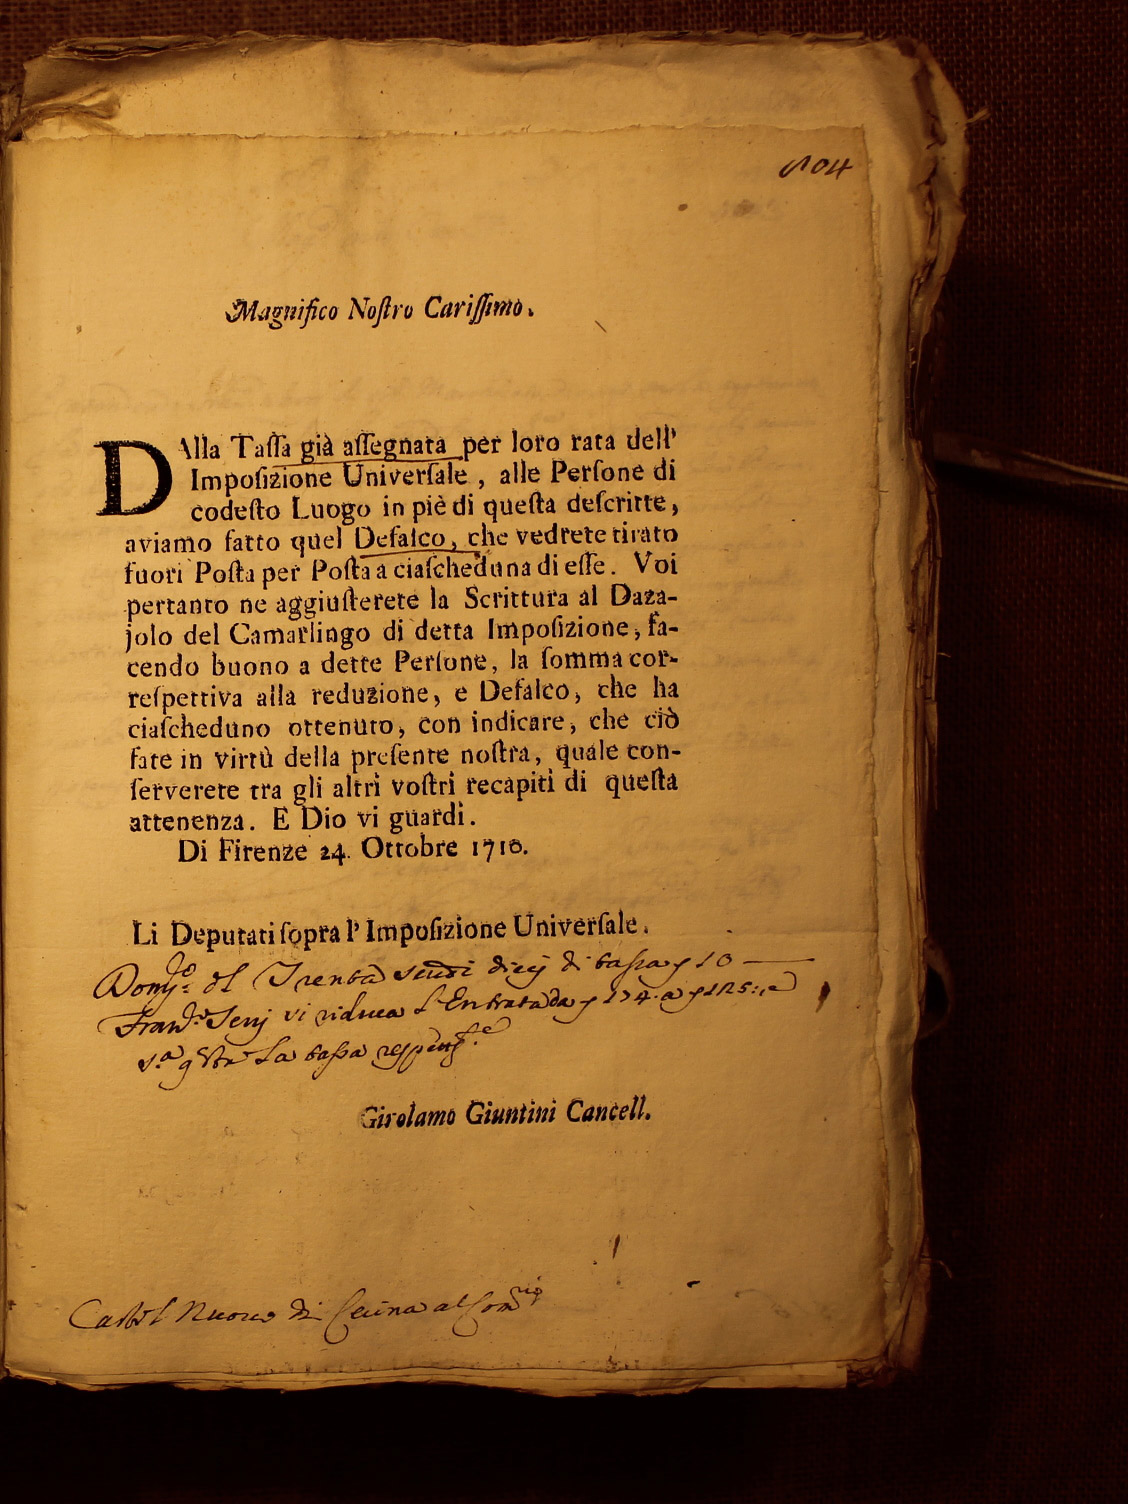 804
Magnifico Noſtro Cariſſimo.
DAlla Taſſa già aſſegnata per loro rata dell'
Impoſizione Univerſale, alle Perſone di
codeſto Luogo in piè di queſta deſcritte,
aviamo fatto quel Defalco, che vedrete tirato
fuori Poſta per Poſta a ciaſcheduna di eſſe. Voi
pertanto ne aggiuſterete la Scrittura al Daza-
jolo del Camarlingo di detta Impoſizione, fa-
cendo buono a dette Perſone, la ſomma cor-
reſpettiva alla reduzione, e Defalco, che ha
ciaſcheduno ottenuto, con indicare, che ciò
fate in virtù della preſente noſtra, quale con-
ſerverete tra gli altri voſtri recapiti di queſta
attenenza. E Dio vi guardi.
Di Firenze 24. Ottobre 1710.
Li Deputati ſopra l' Impoſizione Univerſale.
Trenta scudi dieci di taſsa 10
vi riduca l'Entrata da 174 a
la taſsa
Girolamo Giuntini Cancell.
Castel Nuovo di Cecina al